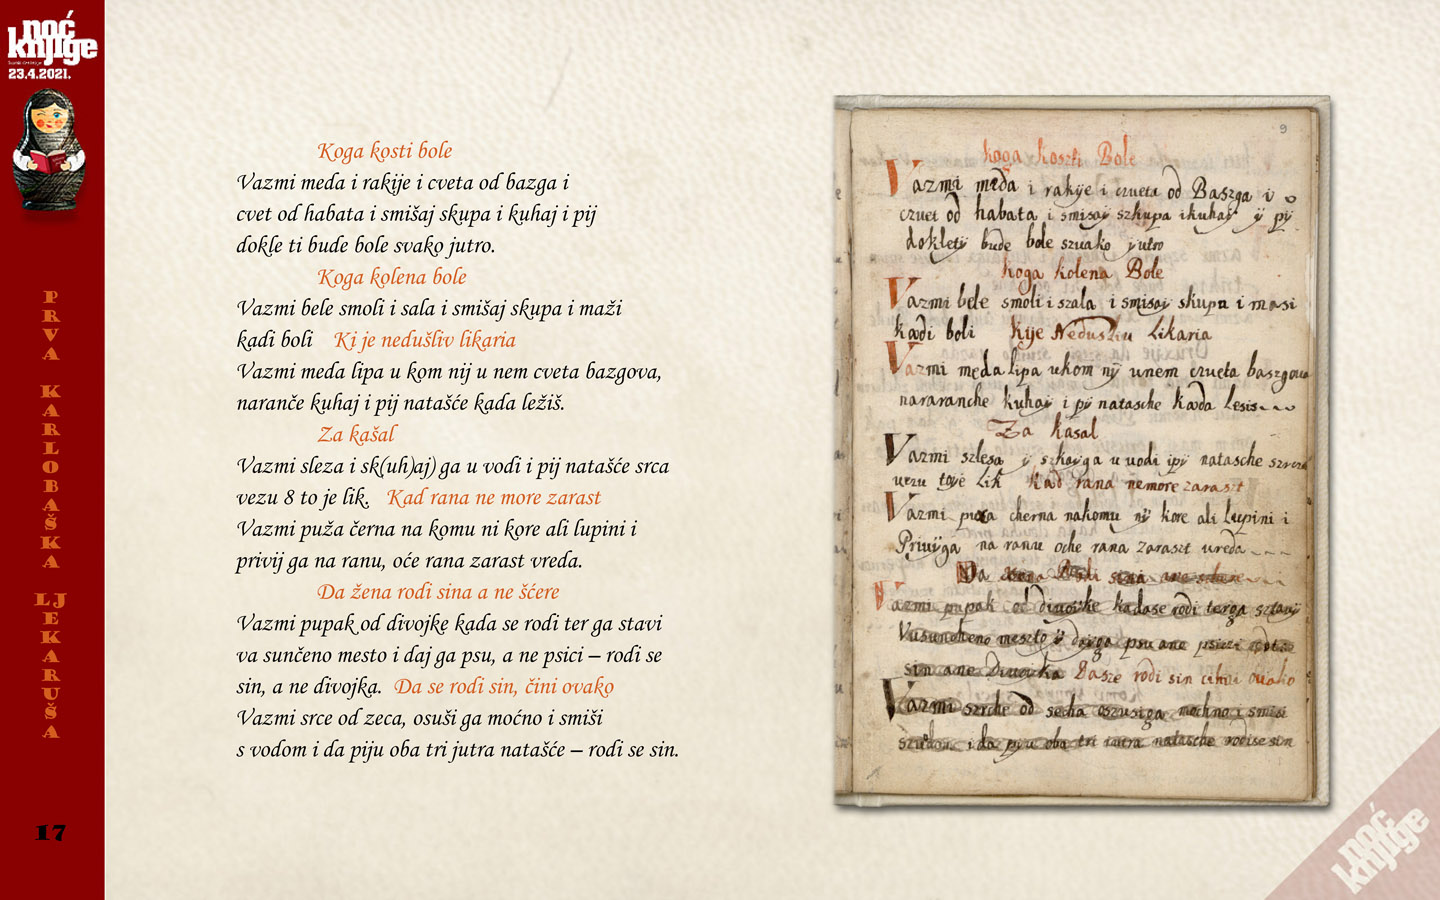 noć
knjige
23.4.2021.
PRVA KARLOBAŠKA LJEKARUŠA
17
Koga kosti bole
Vazmi meda i rakije i cveta od bazga i
cvet od habata i smišaj skupa i kuhaj i pij
dokle ti bude bole svako jutro.
Koga kolena bole
Vazmi bele smoli i sala i smišaj skupa i maži
kadi boli Ki je nedušliv likaria
Vazmi meda lipa u kom nij u nem cveta bazgova,
naranče kuhaj i pij natašće kada ležiš.
Za kašal
Vazmi sleza i sk(uh)aj) ga u vodi i pij natašće srca
vezu 8 to je lik. Kad rana ne more zarast
Vazmi puža černa na komu ni kore ali lupini i
privij ga na ranu, oće rana zarast vreda.
Da žena rodi sina a ne šćere
Vazmi pupak od divojke kada se rodi ter ga stavi
va sunčeno mesto i daj ga psu, a ne psici – rodi se
sin, a ne divojka. Da se rodi sin, čini ovako
Vazmi srce od zeca, osuši ga moćno i smiši
s vodom i da piju oba tri jutra natašće – rodi se sin.
9
koga koszti Bole
Vazmi meda i rakije i czveta od Baszga i
czvet od habata i smisaÿ szkupa i kuhaÿ ÿ pÿ
dokletÿ bude bole szuako jutro
koga kolena Bole
Vazmi bele smoli i szala i smisaÿ skupa i masi
kadi boli kije Nedusliu likaria
Vazmi meda lipa ukom nÿ unem czueta baszgoua
nararanche kuhaÿ i pÿ natasche kada lesis
Za kasal
Vazmi szlesa ÿ szkaÿga u uodi ipÿ natasche
uezu toye lik kad rana nemore zaraszt
Vazmi puxa cherna nakomu nÿ kore ali lupini i
Priuÿga na ranu oche rana zaraszt ureda
Da rodi sina ane
Vazmi pupak od diuoÿke kadase rodi terga sztauÿ
meszto ÿ daÿga psu ane psiczi
sin ane Diuoÿka Dasze rodi sin chini ouako
Vazmi szrche od oszusiga mochno i smisi
i da pÿu oba tri iutra natasche rodise sin
noć
knjige